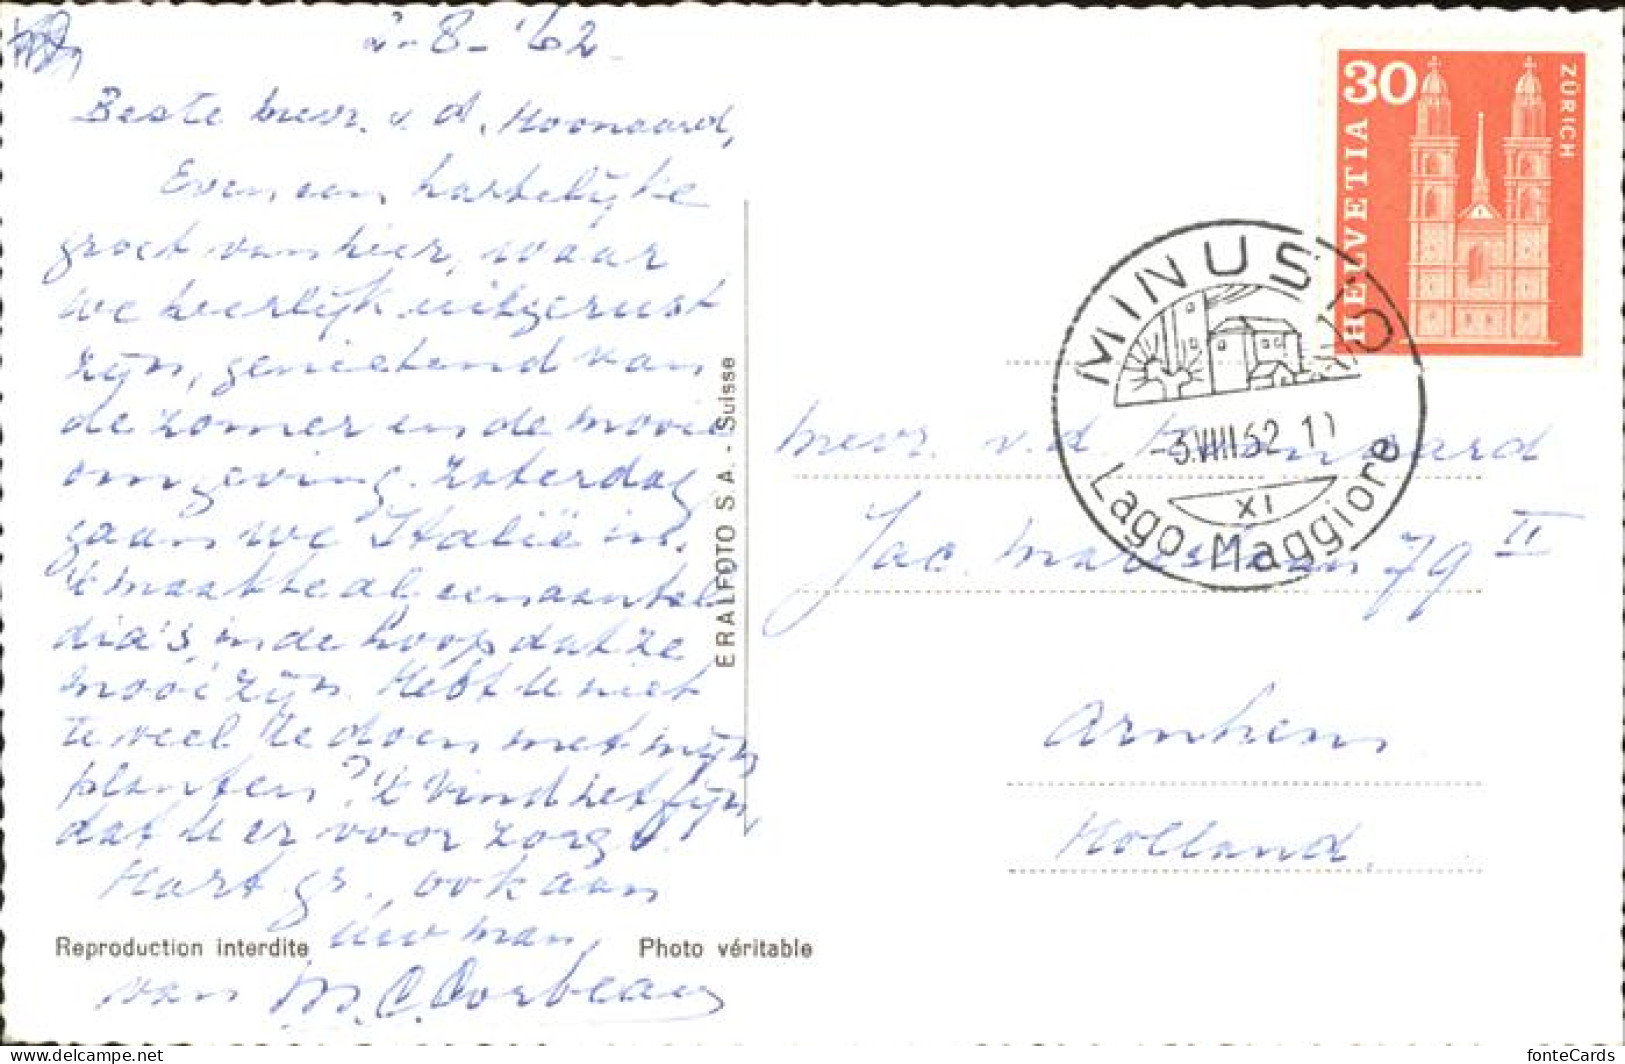 2-8-'62
Beste mevr. v. d. Hoonaard,
Even een hartelijke
groet van hier, waar
we heerlijk uitgerust
zijn, genietend van
de zomer en de mooie
omgeving. Zaterdag
gaan we Italië in.
'k maakte al een aantal
dia's, in de hoop dat ze
mooi zijn. Hebt U niet
te veel te doen met mijn
planten? 'k Vind het fijn
dat U er voor zorgt.
Hart. gr., ook aan
Uw man,
van M. C. Corbeau
Reproduction interdite
Photo véritable
ERALFOTO S.A. - Suisse
30
HELVETIA
ZÜRICH
MINUSIO
-3.VIII.62. 1
XI
Lago Maggiore
mevr. v. d. Hoonaard
Jac. 79 II
Arnhem
Holland.
fonteCards